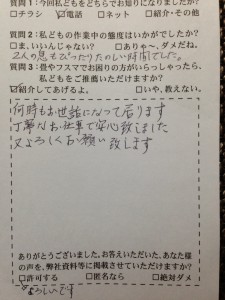 質問1:今回私どもをどちらでお知りになりましたか?
□チラシ ☑電話 □ネット □紹介・その他
質問2:私どもの作業中の態度はいかがでしたか?
□ま、いいんじゃない? □ありゃ〜、ダメだね。
2人の息もぴったりたのしい時間でした。
質問3:畳やフスマでお困りの方がいらっしゃったら、
私どもをご推薦いただけますか?
☑紹介してあげるよ。 □いや、教えない。
何時もお世話になって居ります
丁寧なお仕事で安心致しました
又よろしくお願い致します
ありがとうございました。お答えいただいた、あなた様
の声を、弊社資料等に掲載させていただけますか?
□許可する □匿名なら □絶対ダメ
よろしいです